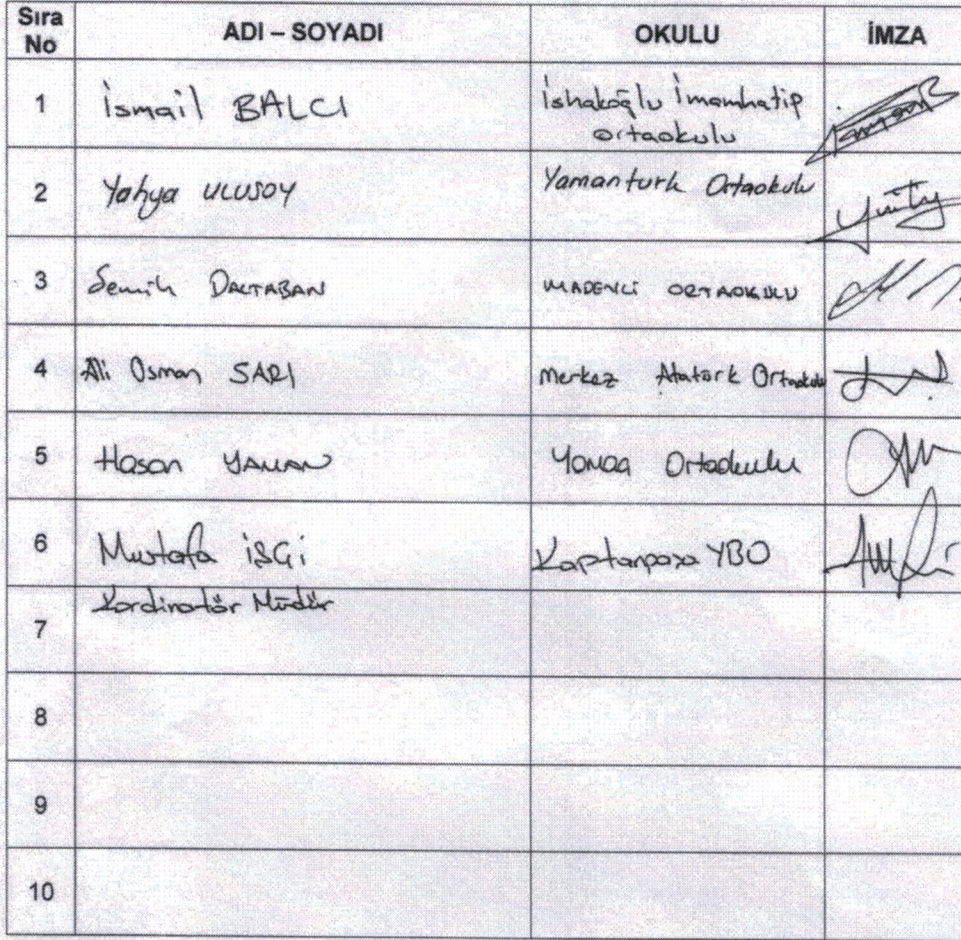 Sıra No ADI – SOYADI OKULU İMZA
1 İsmail BALCI İshakoğlu İmamhatip
ortaokulu
2 Yahya ULUSOY Yamantürk Ortaokulu
3 Semih DALTABAN MADENLİ ORTAOKULU
4 Ali Osman SARI Merkez Atatürk Ortaokulu
5 Hasan YAMAN Ortaokulu
6 Mustafa İŞÇİ Kaptanpaşa YBO
Kordinatör Müdür
7
8
9
10